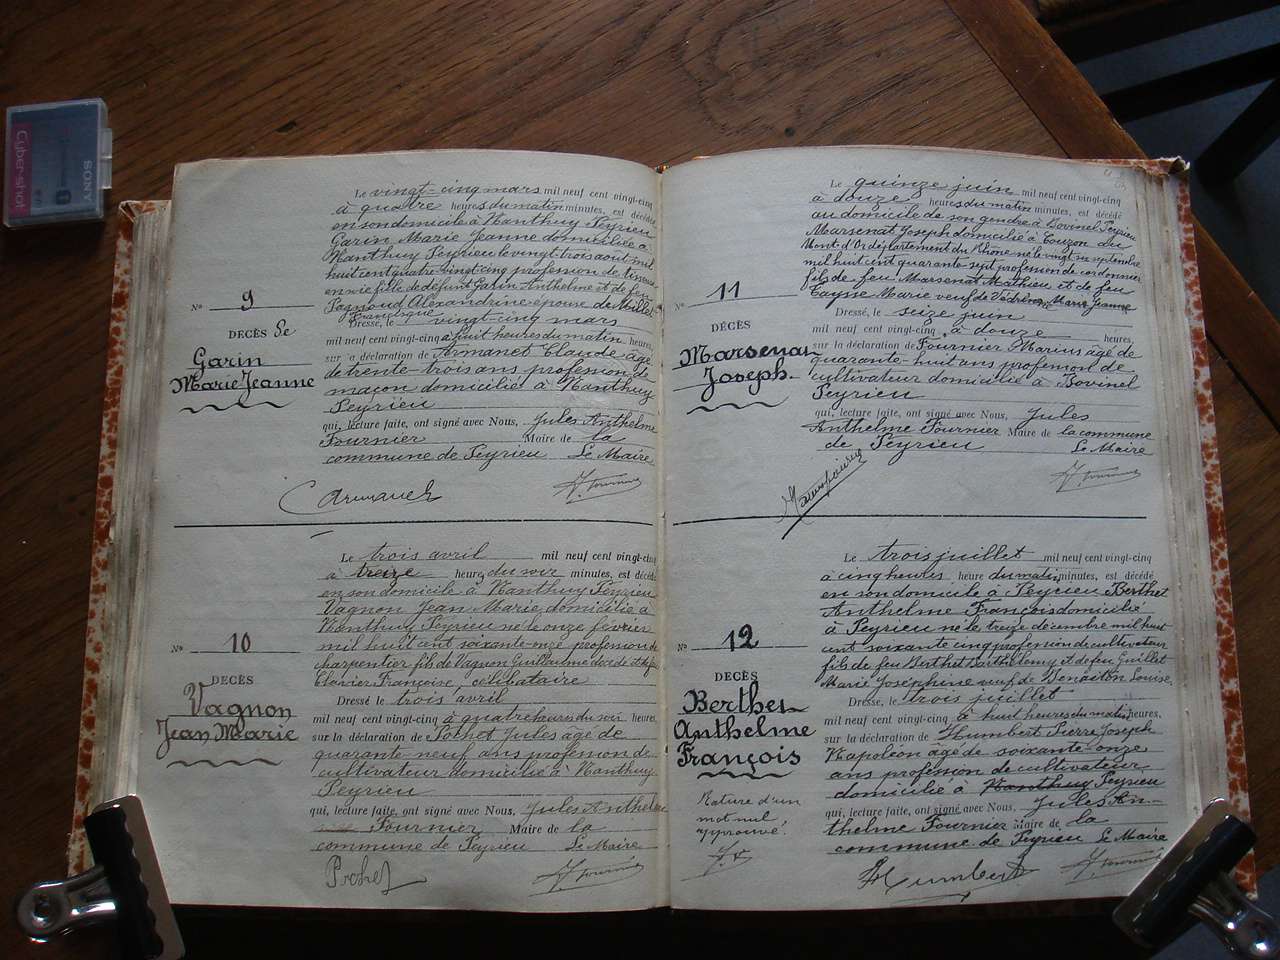 SONY
Cyber-shot
Le vingt-cinq mars mil neuf cent vingt-cinq
à quatre heures du matin minutes, est décédée
en son domicile à Nanthuy Peyrieu
Garin Marie Jeanne domiciliée à
Nanthuy Peyrieu le vingt trois aout mil
huit cent quatre-vingt-cinq profession de
en vie fille de défunt Garin Anthelme et de feu
Pagnoud Alexandrine épouse de Millet
Françisque
Dressé, le vingt-cinq mars
mil neuf cent vingt-cinq à huit heures du matin heures,
sur a déclaration de Armanet Claude âgé
de trente-trois ans profession de
maçon domicilié à Nanthuy
Peyrieu
qui, lecture faite, ont signé avec Nous, Jules Anthelme
Fournier Maire de la
commune de Peyrieu Le Maire
No 9
DÉCÈS De
Garin
Marie Jeanne
Le trois avril mil neuf cent vingt-cinq
à treize heure, du soir minutes, est décédé
en son domicile à Nanthuy Peyrieu
Vagnon Jean Marie domicilié à
Nanthuy Peyrieu né le onze février
mil huit cent soixante-onze profession de
charpentier fils de Vagnon Guillaume
Clavier Françoise, célibataire
Dressé le trois avril
mil neuf cent vingt-cinq à quatre heures du soir heures,
sur la déclaration de Pochet Jules âgé de
quarante neuf ans profession de
cultivateur domicilié à Nanthuy
Peyrieu
qui, lecture faite, ont signé avec Nous, Jules Anthelme
Fournier Maire de la
commune de Peyrieu Le Maire
No 10
DÉCÈS
Vagnon
Jean Marie
Le quinze juin mil neuf cent vingt-cinq
à douze heures du matin minutes, est décédé
au domicile de son gendre à Bovinel Peyrieu
Marsenat Joseph domicilié à Couzon au
Mont d'Or département du Rhône né le vingt un septembre
mil huit cent quarante-sept profession de cordonnier
fils de feu Marsenat Mathieu et de feu
Taysse Marie veuf de Marie Jeanne
Dressé, le seize juin
mil neuf cent vingt-cinq à douze heures,
sur la déclaration de Fournier Marius âgé de
quarante-huit ans profession de
cultivateur domicilié à Bovinel
Peyrieu
qui, lecture faite, ont signé avec Nous, Jules
Anthelme Fournier Maire de la commune
de Peyrieu Le Maire
No 11
DÉCÈS
Marsenat
Joseph
Le trois juillet mil neuf cent vingt-cinq
à cinq heures heure du matin minutes, est décédé
en son domicile à Peyrieu Berthet
Anthelme François domicilié
à Peyrieu né le treize décembre mil huit
cent soixante cinq profession de cultivateur
fils de feu Berthet Barthélemy et de feu Guillet
Marie Joséphine veuf de Venaiton Louise
Dressé, le trois juillet
mil neuf cent vingt-cinq à huit heures du matin heures,
sur la déclaration de Humbert Pierre Joseph
Napoléon âgé de soixante-onze
ans profession de cultivateur
domicilié à Nanthuy Peyrieu
qui, lecture faite, ont signé avec Nous, Jules An-
thelme Fournier Maire de la
commune de Peyrieu Le Maire
Humbert
No 12
DÉCÈS
Berthet
Anthelme
François
Rature d'un
mot nul,
approuvé.